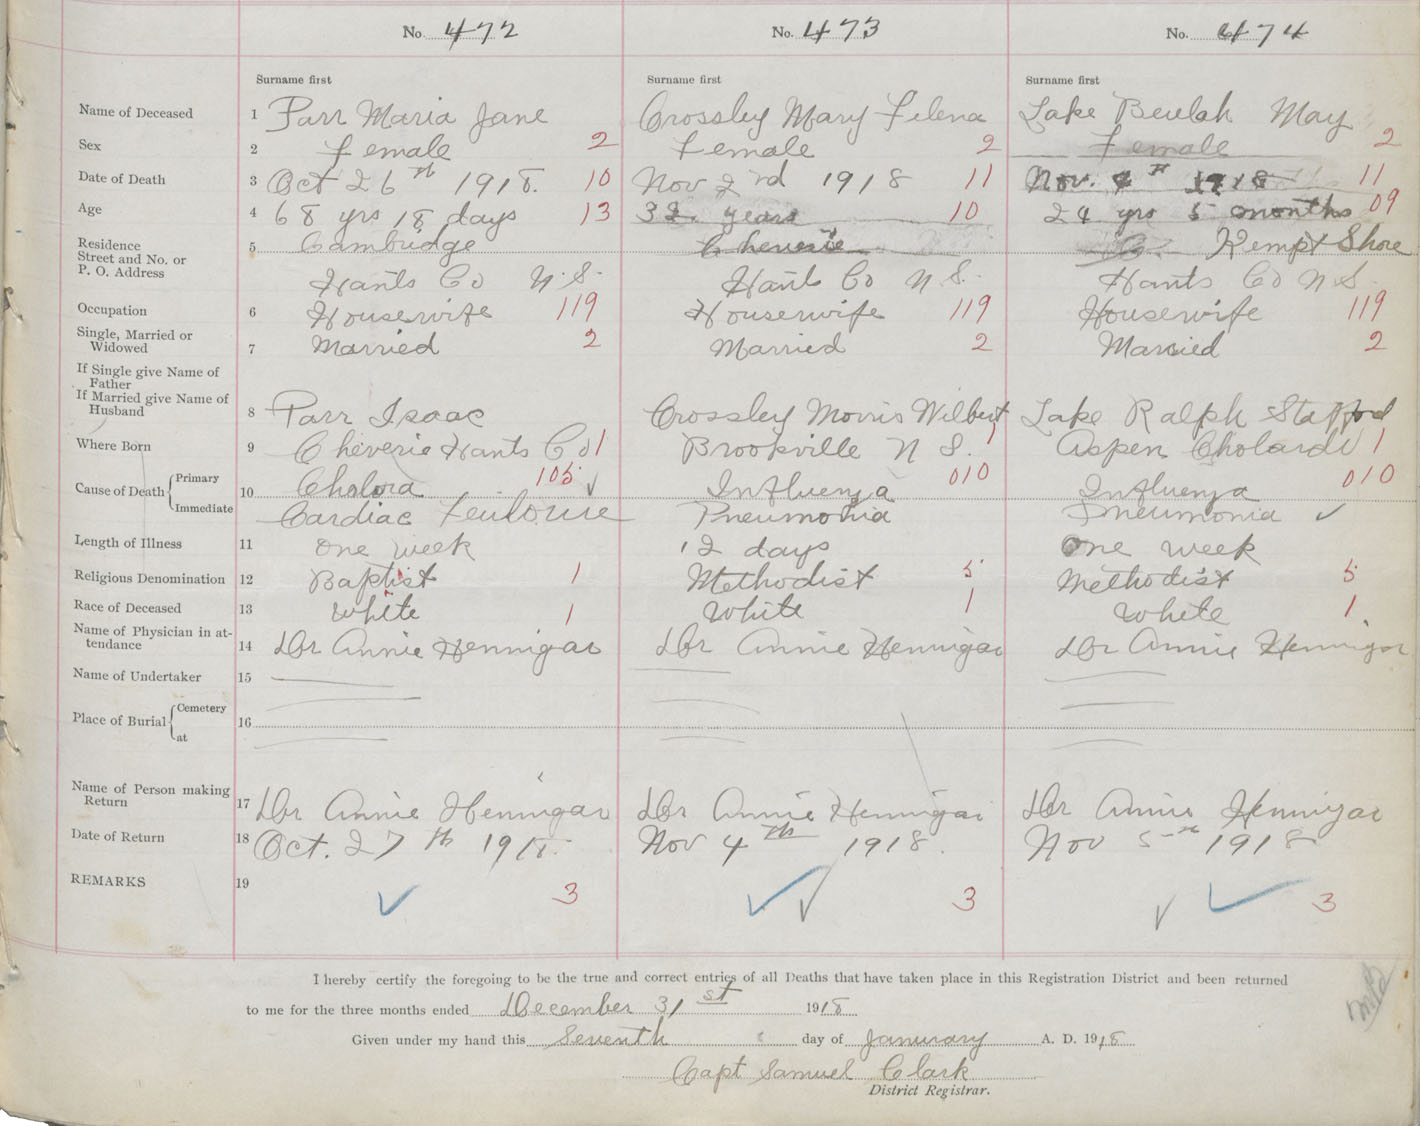 No. 472 No. 473 No. 474
Surname first Surname first Surname first
Name of Deceased 1 Parr Maria Jane Crossley Mary Filena Lake Beulah May
Sex 2 Female 2 Female 2 Female 2
Date of Death 3 Oct 26th 1918. 10 Nov 2nd 1918 11 Nov. 4th 1918 11
Age 4 68 yrs 18 days 13 32. years 10 24 yrs 5 months 09
Residence
Street and No. or
P. O. Address
5 Cambridge Cheverie Kempt Shore
Hants Co N.S. Hants Co N S. Hants Co N S.
Occupation 6 Housewife 119 Housewife 119 Housewife 119
Single, Married or
Widowed 7 Married 2 Married 2 Married 2
If Single give Name of
Father
If Married give Name of
Husband 8 Parr Isaac Crossley Morris Wilbert Lake Ralph Stafford
Where Born 9 Cheverie Hants Co 1 Brookville N S. 1 Aspen 1
Cause of Death Primary 10 Cholora 105 ✓ Influenza 010 Influenza 010
Immediate Cardiac Pneumonia Pneumonia ✓
Length of Illness 11 one week 12 days One week
Religious Denomination 12 Baptist 1 Methodist 5 Methodist 5
Race of Deceased 13 White 1 White 1 White 1
Name of Physician in at-
tendance 14 Dr Annie Hennigar Dr Annie Hennigar Dr Annie Hennigar
Name of Undertaker 15
Place of Burial Cemetery
16
at
Name of Person making
Return 17 Dr Annie Hennigar Dr Annie Hennigar Dr Annie Hennigar
Date of Return 18 Oct. 27th 1918. Nov 4th 1918. Nov 5th 1918
REMARKS 19 ✓ 3 ✓ ✓ 3 ✓ ✓ 3
I hereby certify the foregoing to be the true and correct entries of all Deaths that have taken place in this Registration District and been returned
to me for the three months ended December 31st 1918
Given under my hand this Seventh day of Janurary A. D. 1918
Capt Samuel Clark
District Registrar.